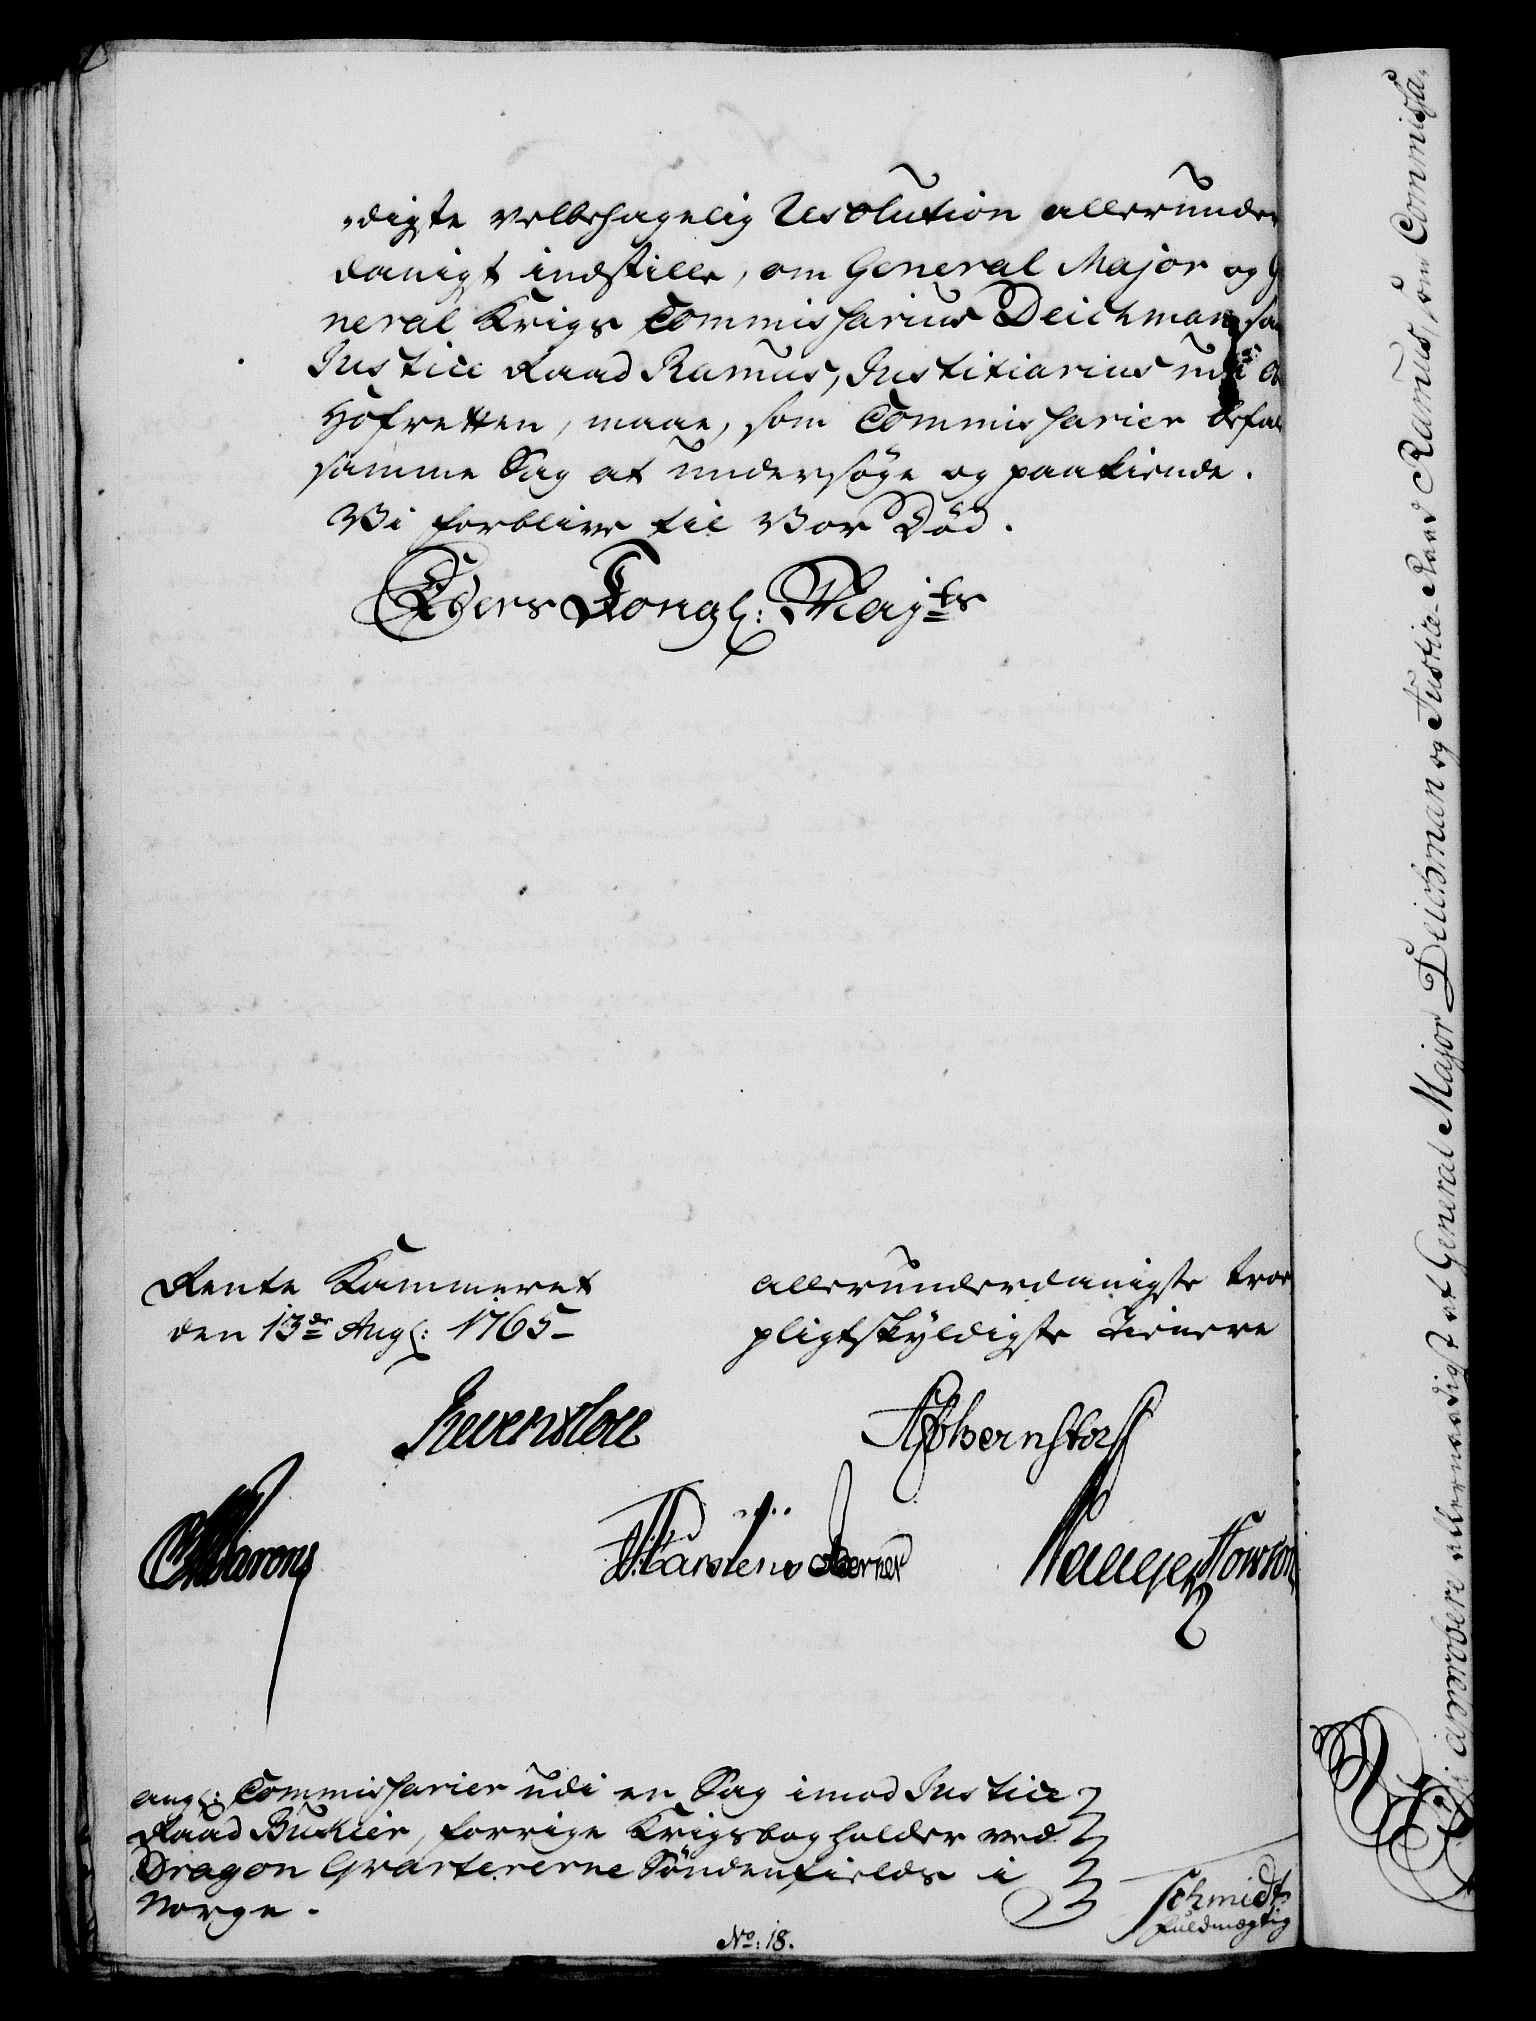 -digste velbehagelig Resolution allerunder
danigst indstille, om General Major og G
neral Krigs Commissarius Deichman sa
Justice Raad Ramus, Justitiarius udi O
Hofretten, maae, som Commissarier befal
samme Sag at undersöge og paakiende.
Vi forblive til Vor Död.
Eders Kongl: Majts
Rente Kammeret
den 13de Augl: 1765-
allerunderdanigste troe
pligtskyldigste Tienere
Reventlou AGvBernstorff
Marons JMartens Berner
angl: Commissarier udi en Sag imod Justice
Raad Buskier, forrige Krigsbogholder ved
Dragon Qvartererne Söndenfields i
Norge.
Schmidt
Fuldmægtig
No: 18.
Vi approbere allernaadigst at General Major Deichman og Justice Raad Ramus, som Commissa,